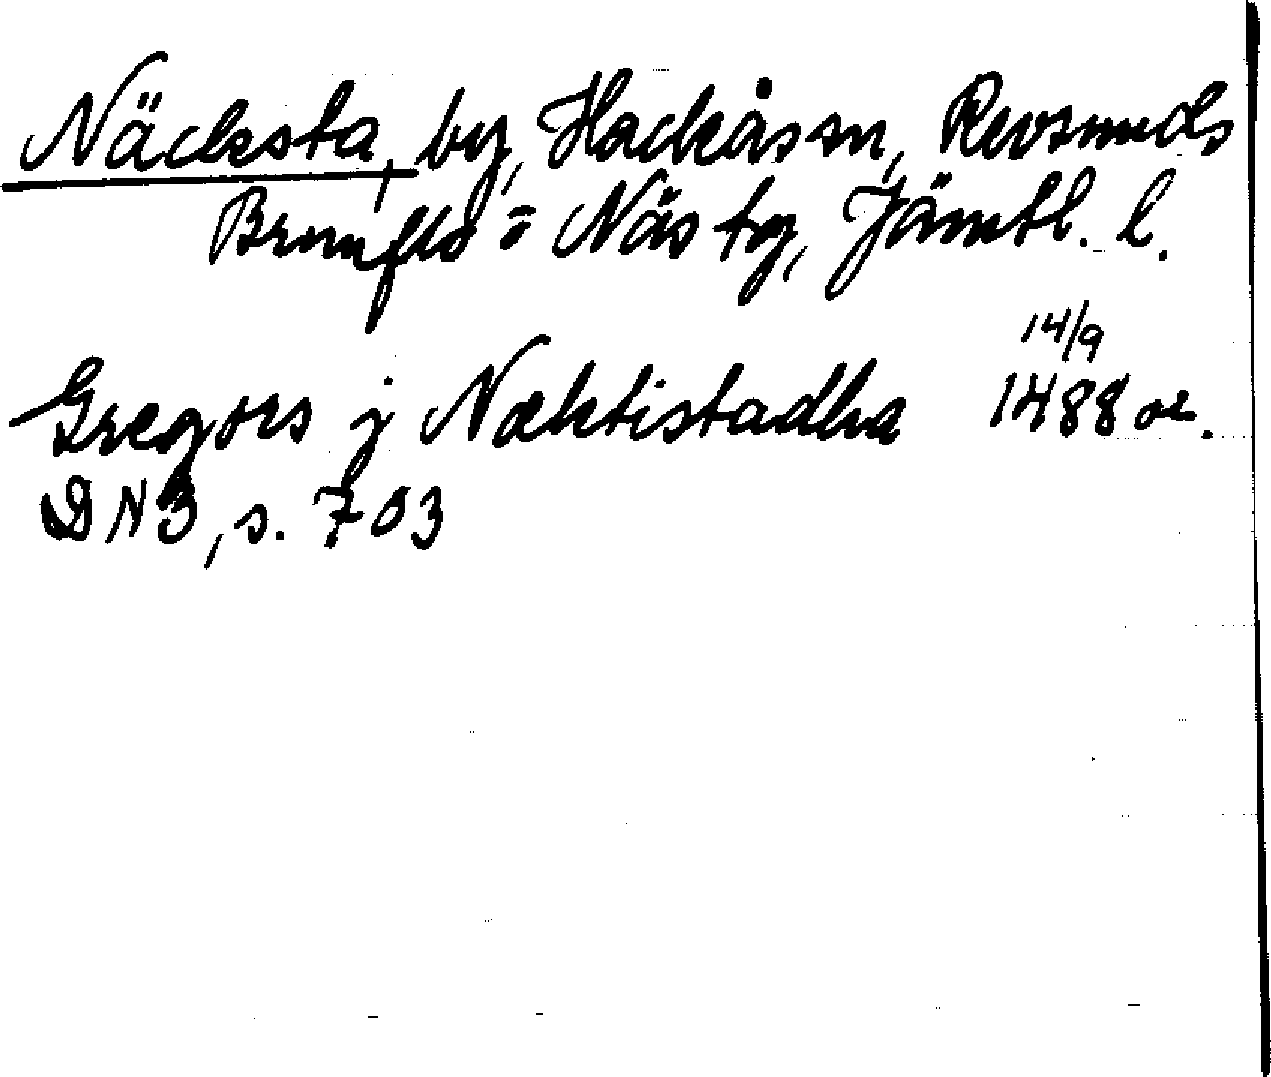 Näcksta, by, Hackås sn, Revsunds
Brunflo o Näs tg, Jämtl. l.
14/9
Gregers j Næktistadha 1488 or.
DN 3, s. 703